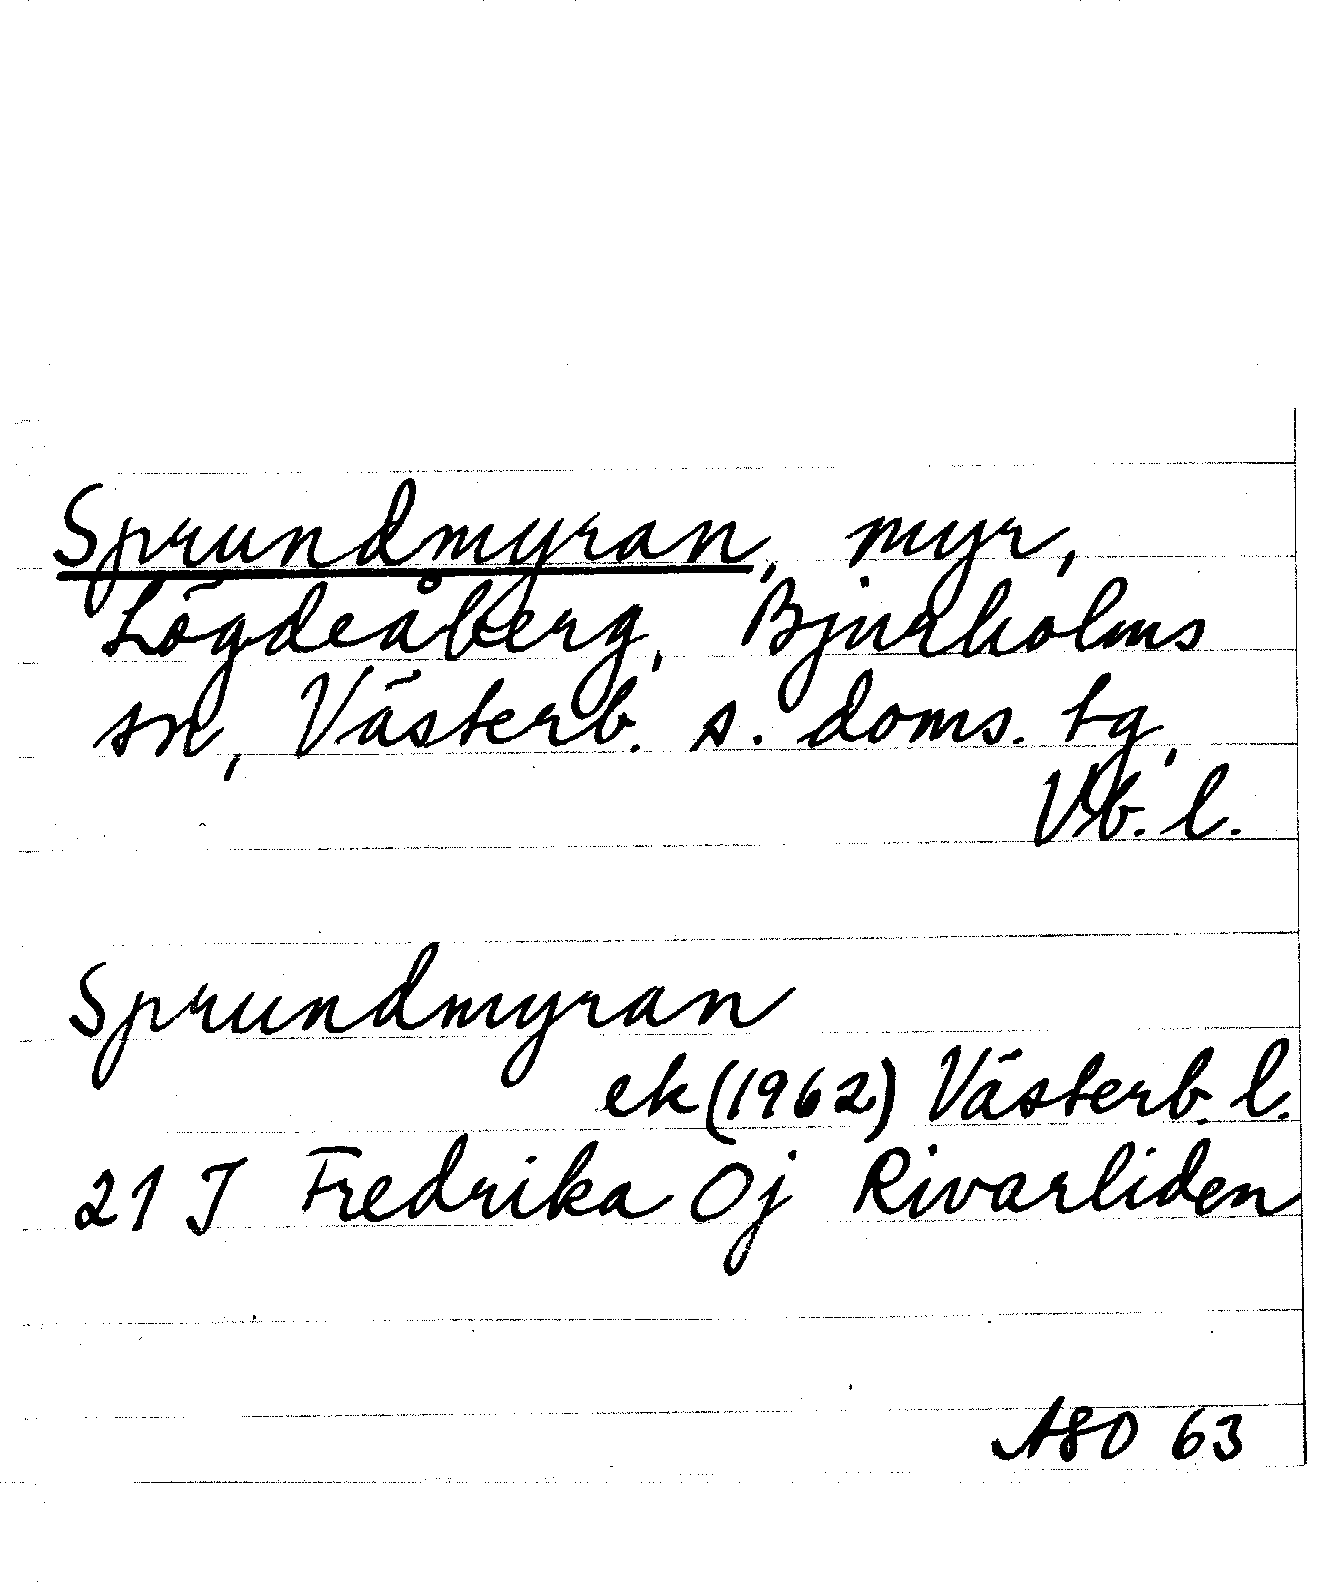 Sprundmyran, myr,
Lögdeåberg, Bjurholms
sn, Västerb. s. doms. tg,
Vb. l.
Sprundmyran
ek (1962) Västerb. l.
21 J Fredrika Oj Rivarliden
ASO 63